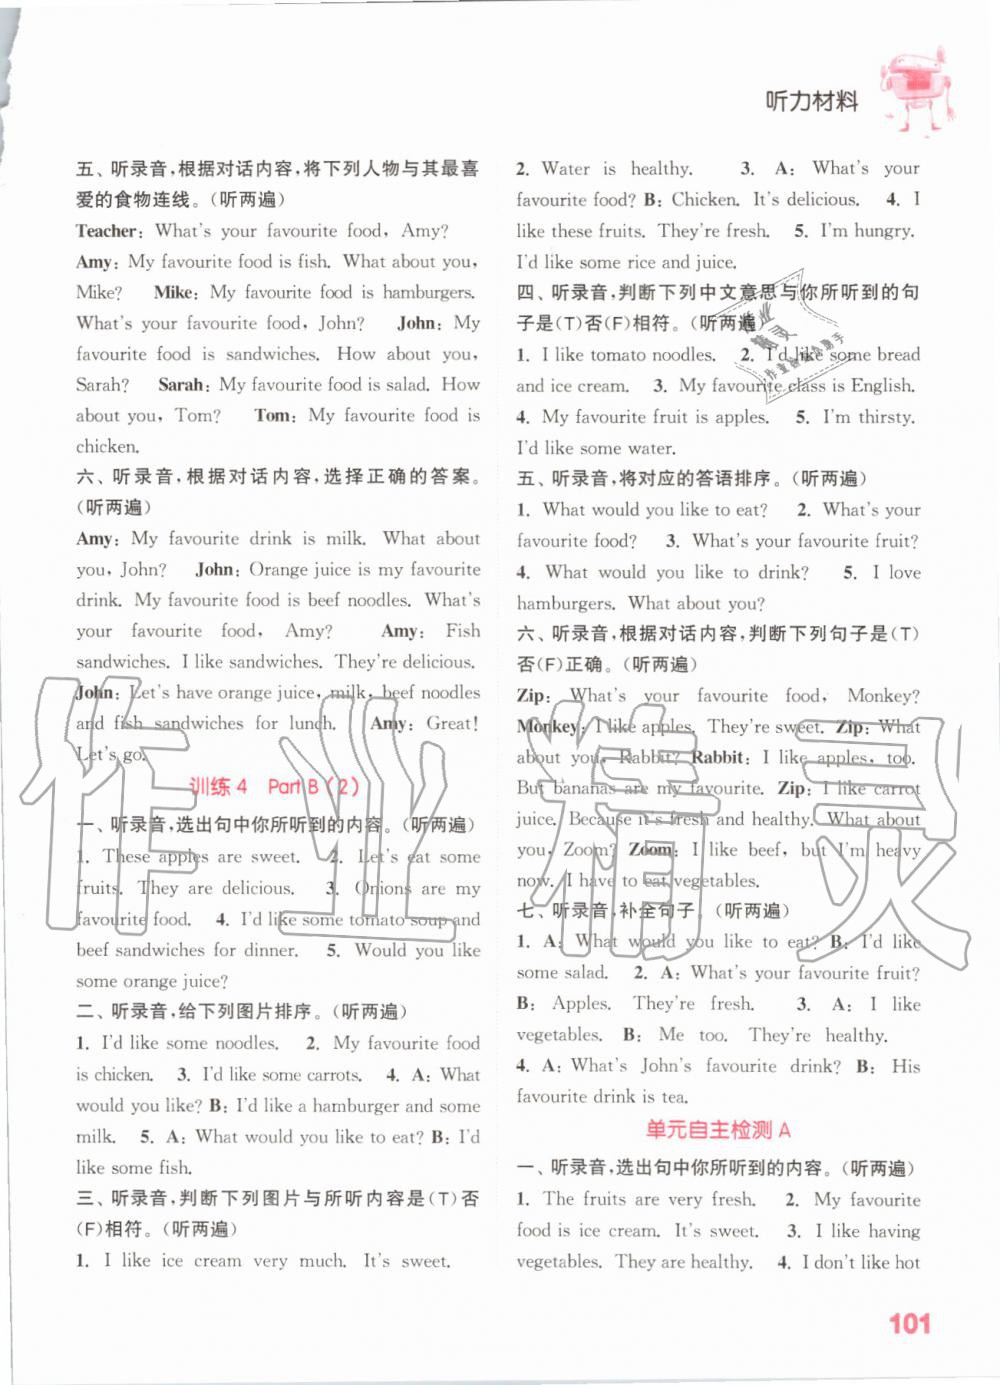 听力材料
五、听录音,根据对话内容,将下列人物与其最喜
爱的食物连线。(听两遍)
Teacher: What's your favourite food, Amy?
Amy: My favourite food is fish. What about you,
Mike? Mike: My favourite food is hamburgers.
What's your favourite food, John? John: My
favourite food is sandwiches. What about you,
Sarah? Sarah: My favourite food is salad. How
about you, Tom? Tom: My favourite food is
chicken.
六、听录音,根据对话内容,选择正确的答案。
(听两遍)
Amy: My favourite drink is milk. What about
you, John? John: Orange juice is my favourite
drink. My favourite food is beef noodles. What's
your favourite food, Amy? Amy: Fish
sandwiches. I like sandwiches. They're delicious.
John: Let's have orange juice, milk, beef noodles
and fish sandwiches for lunch. Amy: Great!
Let's go.
训练4 Part B(2)
一、听录音,选出句中你所听到的内容。(听两遍)
1. These apples are sweet. 2. Let's eat some
fruits. They are delicious. 3. Onions are my
favourite food. 4. I'd like some tomato soup and
beef sandwiches for dinner. 5. Would you like
some orange juice?
二、听录音,给下列图片排序。(听两遍)
1. I'd like some noodles. 2. My favourite food
is chicken. 3. I'd like some carrots. 4. A: What
would you like? B: I'd like a hamburger and some
milk. 5. A: What would you like to eat? B: I'd
like some fish.
三、听录音,判断下列图片与所听内容是(T)否
(F)相符。(听两遍)
1. I like ice cream very much. It's sweet.
2. Water is healthy. 3. A: What's your
favourite food? B: Chicken. It's delicious. 4. I
like these fruits. They're fresh. 5. I'm hungry.
I'd like some rice and juice.
四、听录音,判断下列中文意思与你所听到的句
子是(T)否(F)相符。(听两遍)
1. I like tomato noodles. 2. I'd like some bread
and ice cream. 3. My favourite class is English.
4. My favourite fruit is apples. 5. I'm thirsty.
I'd like some water.
五、听录音,将对应的答语排序。(听两遍)
1. What would you like to eat? 2. What's your
favourite food? 3. What's your favourite fruit?
4. What would you like to drink? 5. I love
hamburgers. What about you?
六、听录音,根据对话内容,判断下列句子是(T)
否(F)正确。(听两遍)
Zip: What's your favourite food, Monkey?
Monkey: I like apples. They're sweet. Zip: What
about you, Rabbit? Rabbit: I like apples, too.
But bananas are my favourite. Zip: I like carrot
juice. Because it's fresh and healthy. What about
you, Zoom? Zoom: I like beef, but I'm heavy
now. I have to eat vegetables.
七、听录音,补全句子。(听两遍)
1. A: What would you like to eat? B: I'd like
some salad. 2. A: What's your favourite fruit?
B: Apples. They're fresh. 3. A: I like
vegetables. B: Me too. They're healthy.
4. A: What's John's favourite drink? B: His
favourite drink is tea.
单元自主检测A
一、听录音,选出句中你所听到的内容。(听两遍)
1. The fruits are very fresh. 2. My favourite
food is ice cream. It's sweet. 3. I like having
vegetables. They are healthy. 4. I don't like hot
101
作业精灵